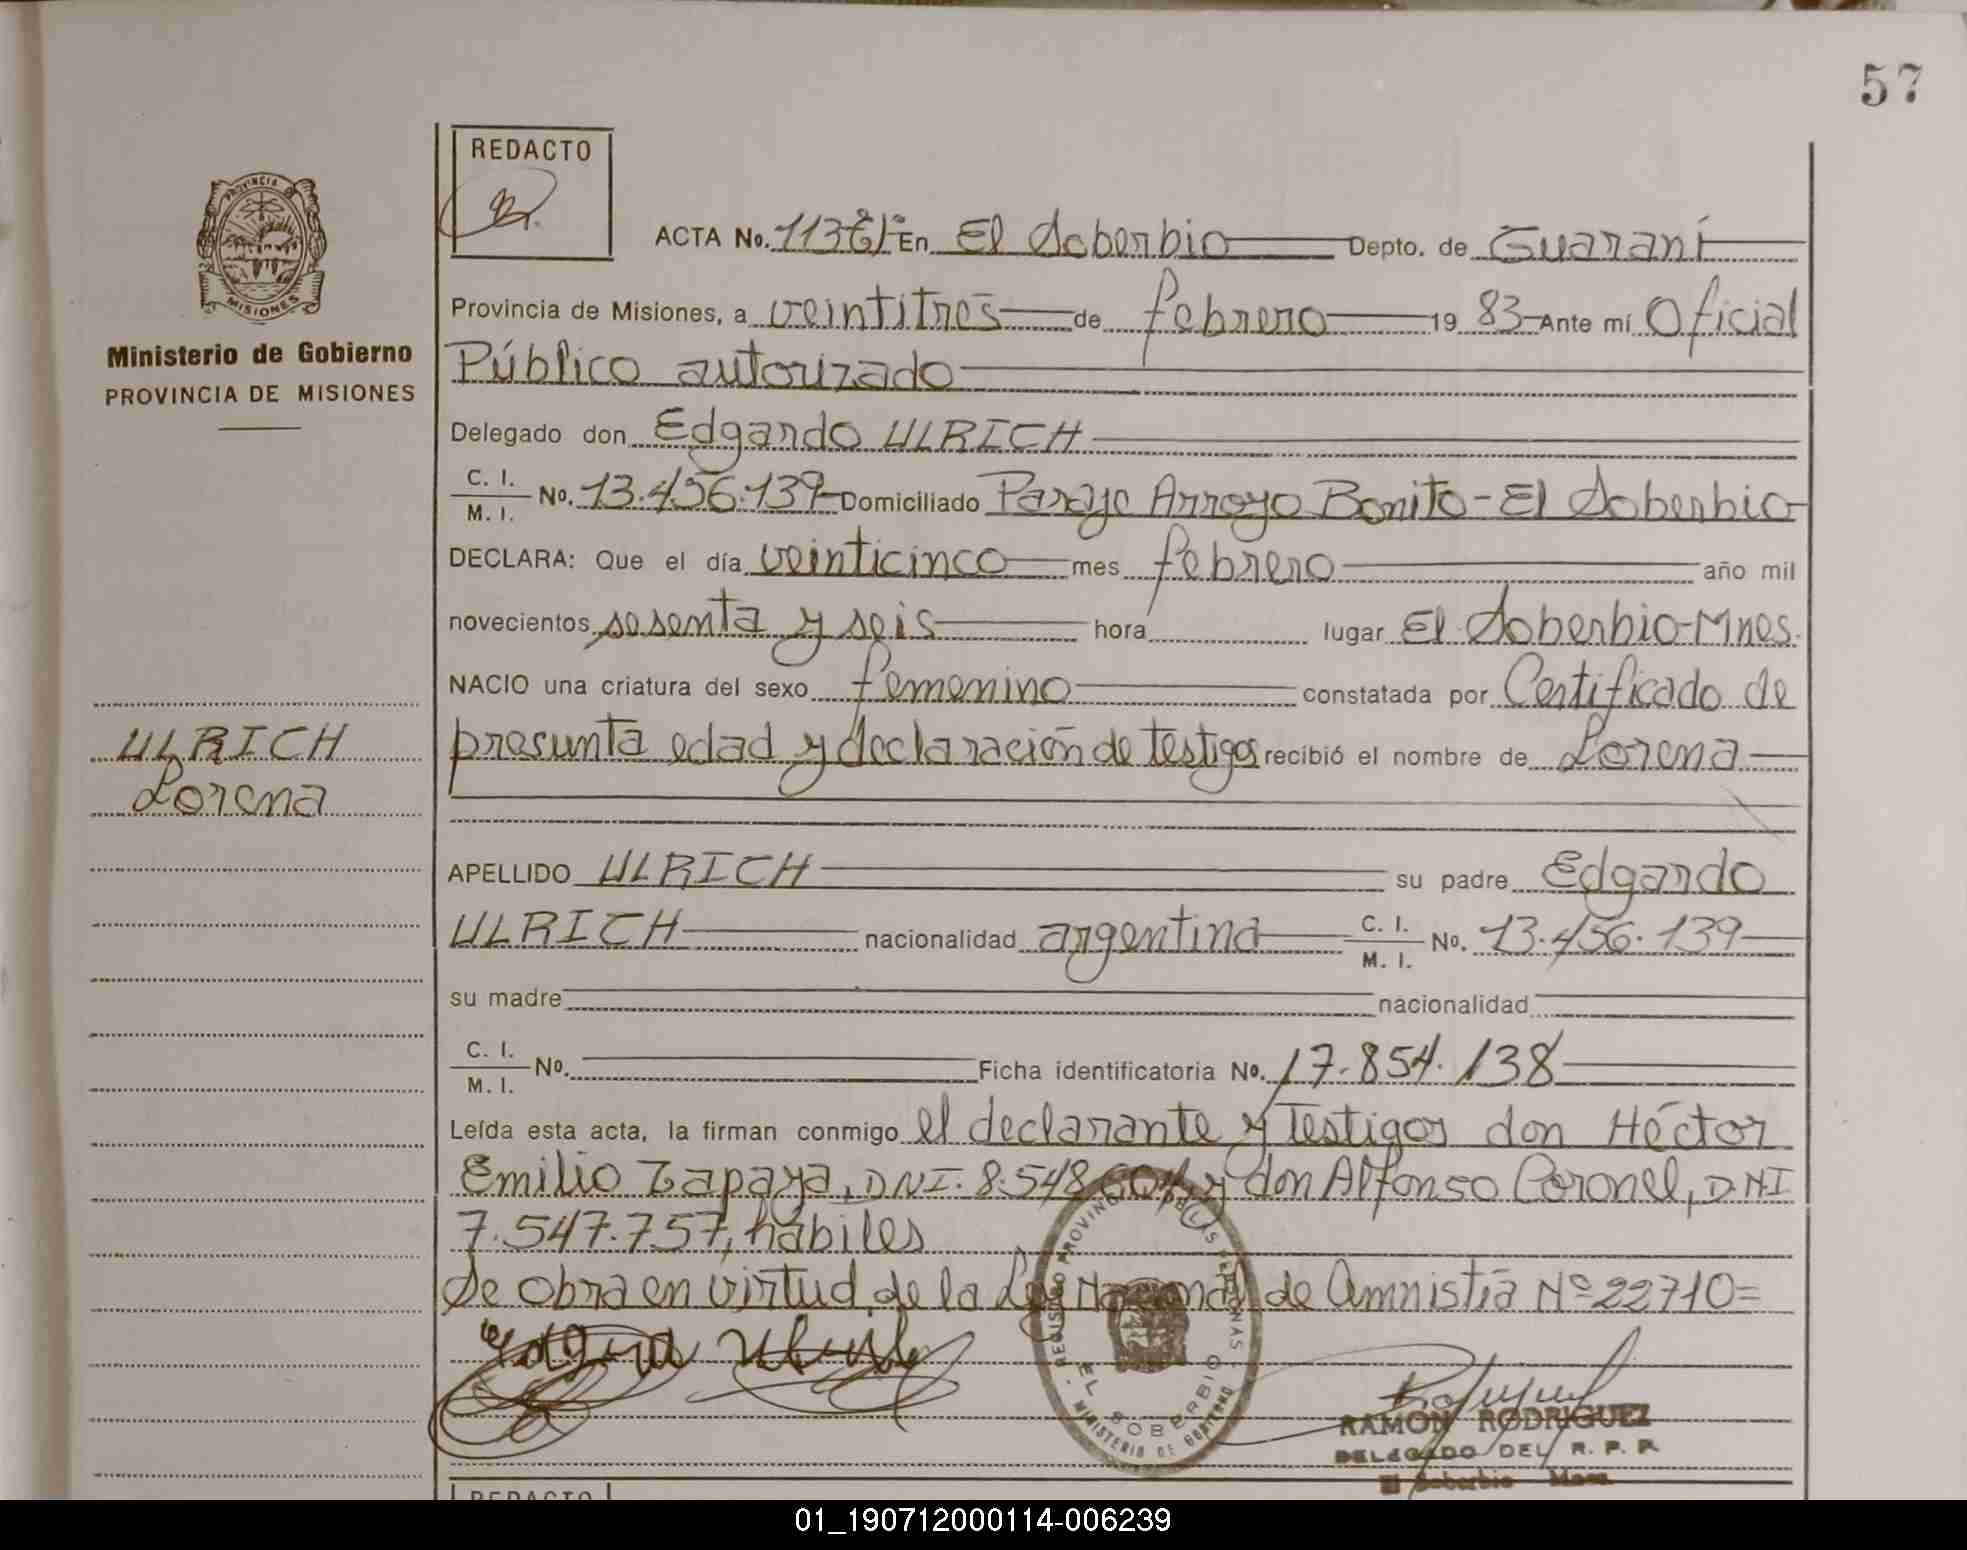 57
REDACTO
PROVINCIA
MISIONES
Ministerio de Gobierno
PROVINCIA DE MISIONES
ACTA No. En El Soberbio Depto. de Guaraní
Provincia de Misiones, a veintitres de febrero 1983 Ante mí Oficial
Público autorizado
Delegado don Edgardo ULRICH
C. I.
M. I. No. 13.456.139 Domiciliado Paraje Arroyo Bonito - El Soberbio
DECLARA: Que el día veinticinco mes febrero año mil
novecientos sesenta y seis hora lugar El Soberbio-Mnes.
NACIO una criatura del sexo femenino constatada por Certificado de
presunta edad y declaración de testigos recibió el nombre de Lorena
ULRICH
Lorena
APELLIDO ULRICH su padre Edgardo
ULRICH nacionalidad argentina C. I. M. I. No. 13.456.139
su madre nacionalidad
C. I.
M. I. No. Ficha identificatoria No. 17.854.138
Leída esta acta, la firman conmigo el declarante y Testigos don Héctor
Emilio Zapaya, DNI. 8.548 y don Alfonso Coronel, DNI
7.547.757, hábiles
Se obra en virtud de la Ley Nacional de Amnistía Nº 22710=
REGISTRO PROVINCIAL DE LAS PERSONAS
EL SOBERBIO
MINISTERIO DE GOBIERNO
RAMON RODRIGUEZ
DELEGADO DEL R. P. P.
El Soberbio Mnes.
REDACTO
01_190712000114-006239